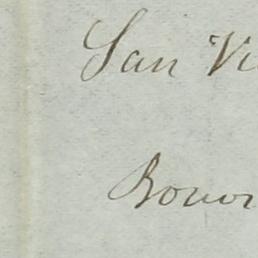 San Vi
Bonor